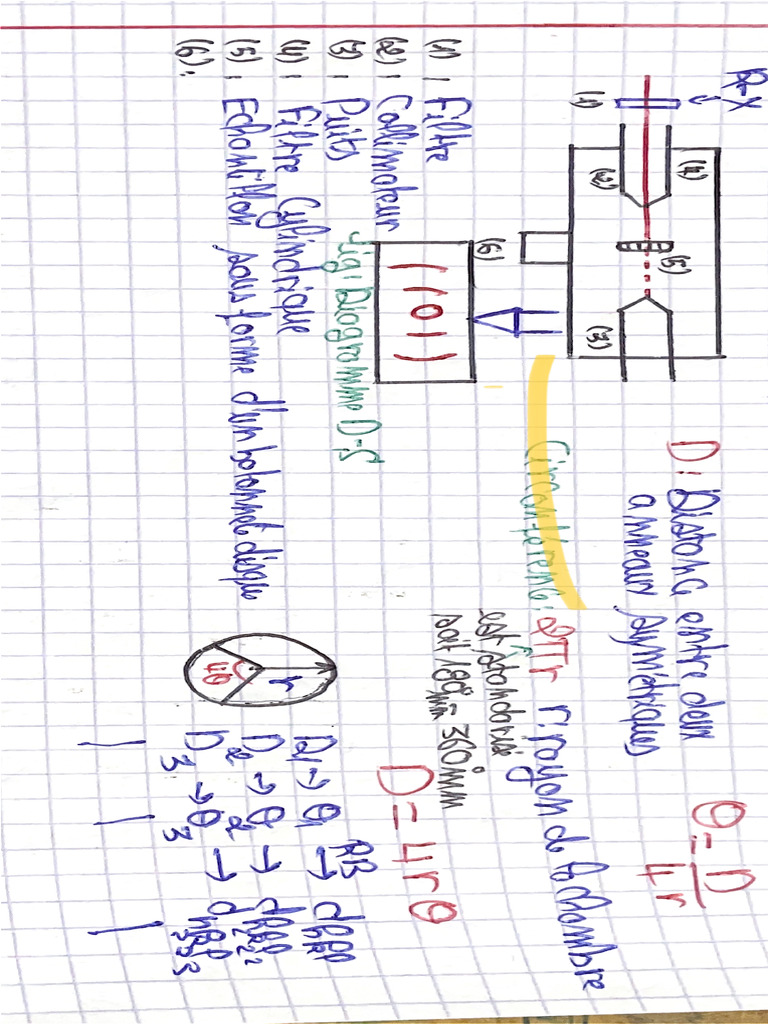 R-X
(1)
(4)
(2)
(5)
(3)
(6)
(1) : Filtre
(2) : Collimateur
(3) : Puits
(4) : Filtre Cylindrique
(5) : Echantillon sous forme d'un batonnet disque
(6) :
fig : Diagramme D-S
D : Distance entre deux
anneaux symétriques
θ = D
4r
Circonférence : 2πr r : rayon de la chambre
est standarisé
soit 180mm = 360mm
D = 4rθ
r
4θ
RB
D1 → θ1 → dh1k1l1
D2 → θ2 → dh2k2l2
D3 → θ3 → dh3k3l3